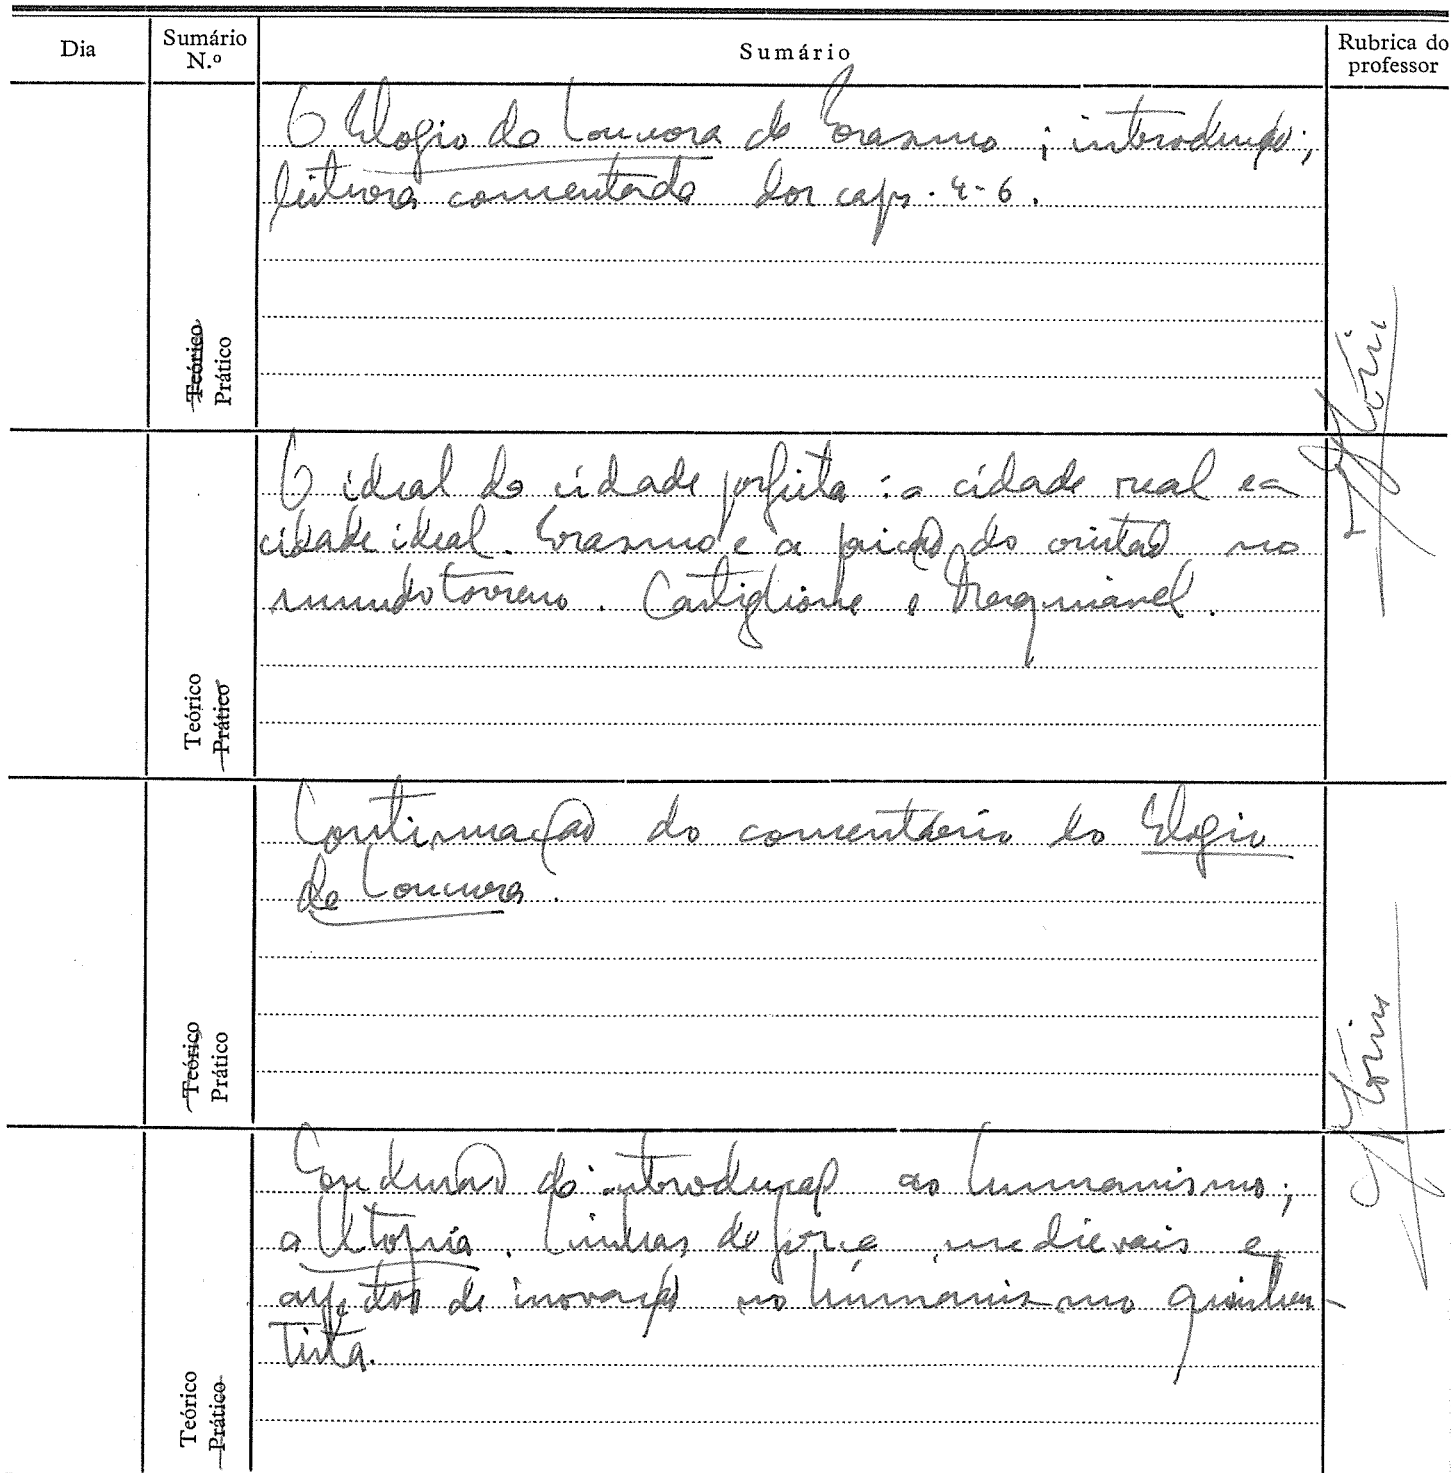 Dia
Sumário N.º
Sumário
Rubrica do professor
O Elogio da Loucura de Erasmo ; introdução ;
leitura comentada dos caps. 4-6.
Teórico
Prático
O ideal da cidade perfeita : a cidade real e a
cidade ideal. Erasmo e a do cristão no
mundo terreno. Castiglione e Maquiavel.
Teórico
Prático
Continuação do comentário do Elogio
da Loucura.
Teórico
Prático
Conclusão da introdução ao humanismo ;
a Utopia. Linhas de força medievais e
aspectos de inovação no humanismo quinhen-
tista.
Teórico
Prático